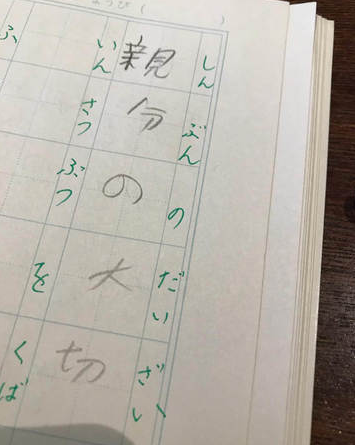 ようび( )
しんぶんのだいざい
親分の大切
いんさつぶつをくば
ふ